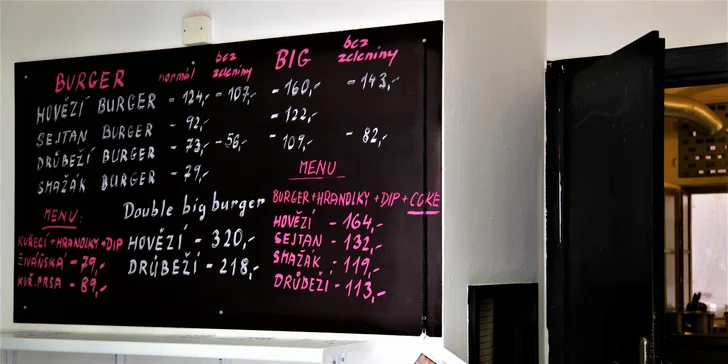 BURGER normál bez zeleniny BIG bez zeleniny
HOVĚZÍ BURGER - 124,- - 107,- - 160,- - 143,-
SEJTAN BURGER - 92,- - 122,-
DRŮBEŽÍ BURGER - 73,- - 56,- - 109,- - 82,-
SMAŽÁK BURGER - 79,-
MENU
BURGER+HRANOLKY+DIP+COKE
HOVĚZÍ - 164,-
SEJTAN - 132,-
SMAŽÁK - 119,-
DRŮBEŽÍ - 113,-
Double big burger
HOVĚZÍ - 320,-
DRŮBEŽÍ - 218,-
MENU:
KUŘECÍ+HRANOLKY+DIP
ŽIVÁŇSKÁ - 79,-
KUŘ.PRSA - 89,-